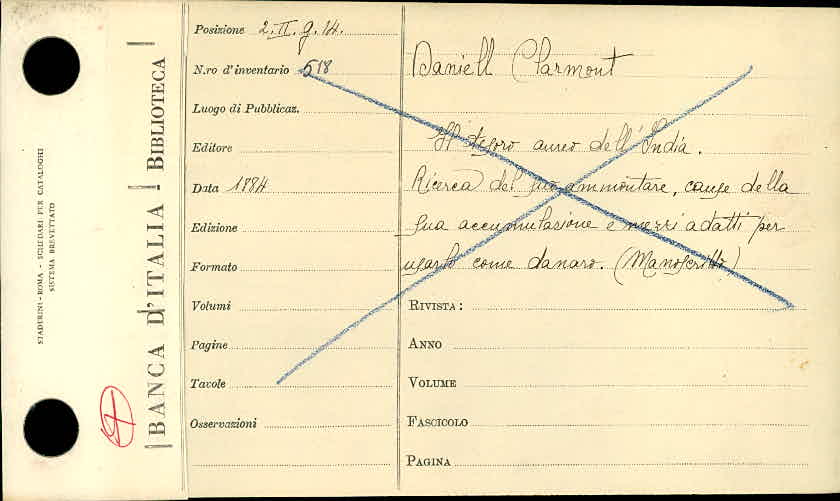 STADERINI - ROMA - SCHEDARI PER CATALOGHI
SISTEMA BREVETTATO
BANCA D'ITALIA - BIBLIOTECA
Posizione 2.II.g.14.
N.ro d'inventario 518
Luogo di Pubblicaz.
Editore
Data 1884
Edizione
Formato
Volumi
Pagine
Tavole
Osservazioni
Daniell Clarmont
Il tesoro aureo dell'India.
Ricerca del suo ammontare, cause della
sua accumulasione e mezzi adatti per
usarlo come danaro. (Manoscritto)
RIVISTA:
ANNO
VOLUME
FASCICOLO
PAGINA